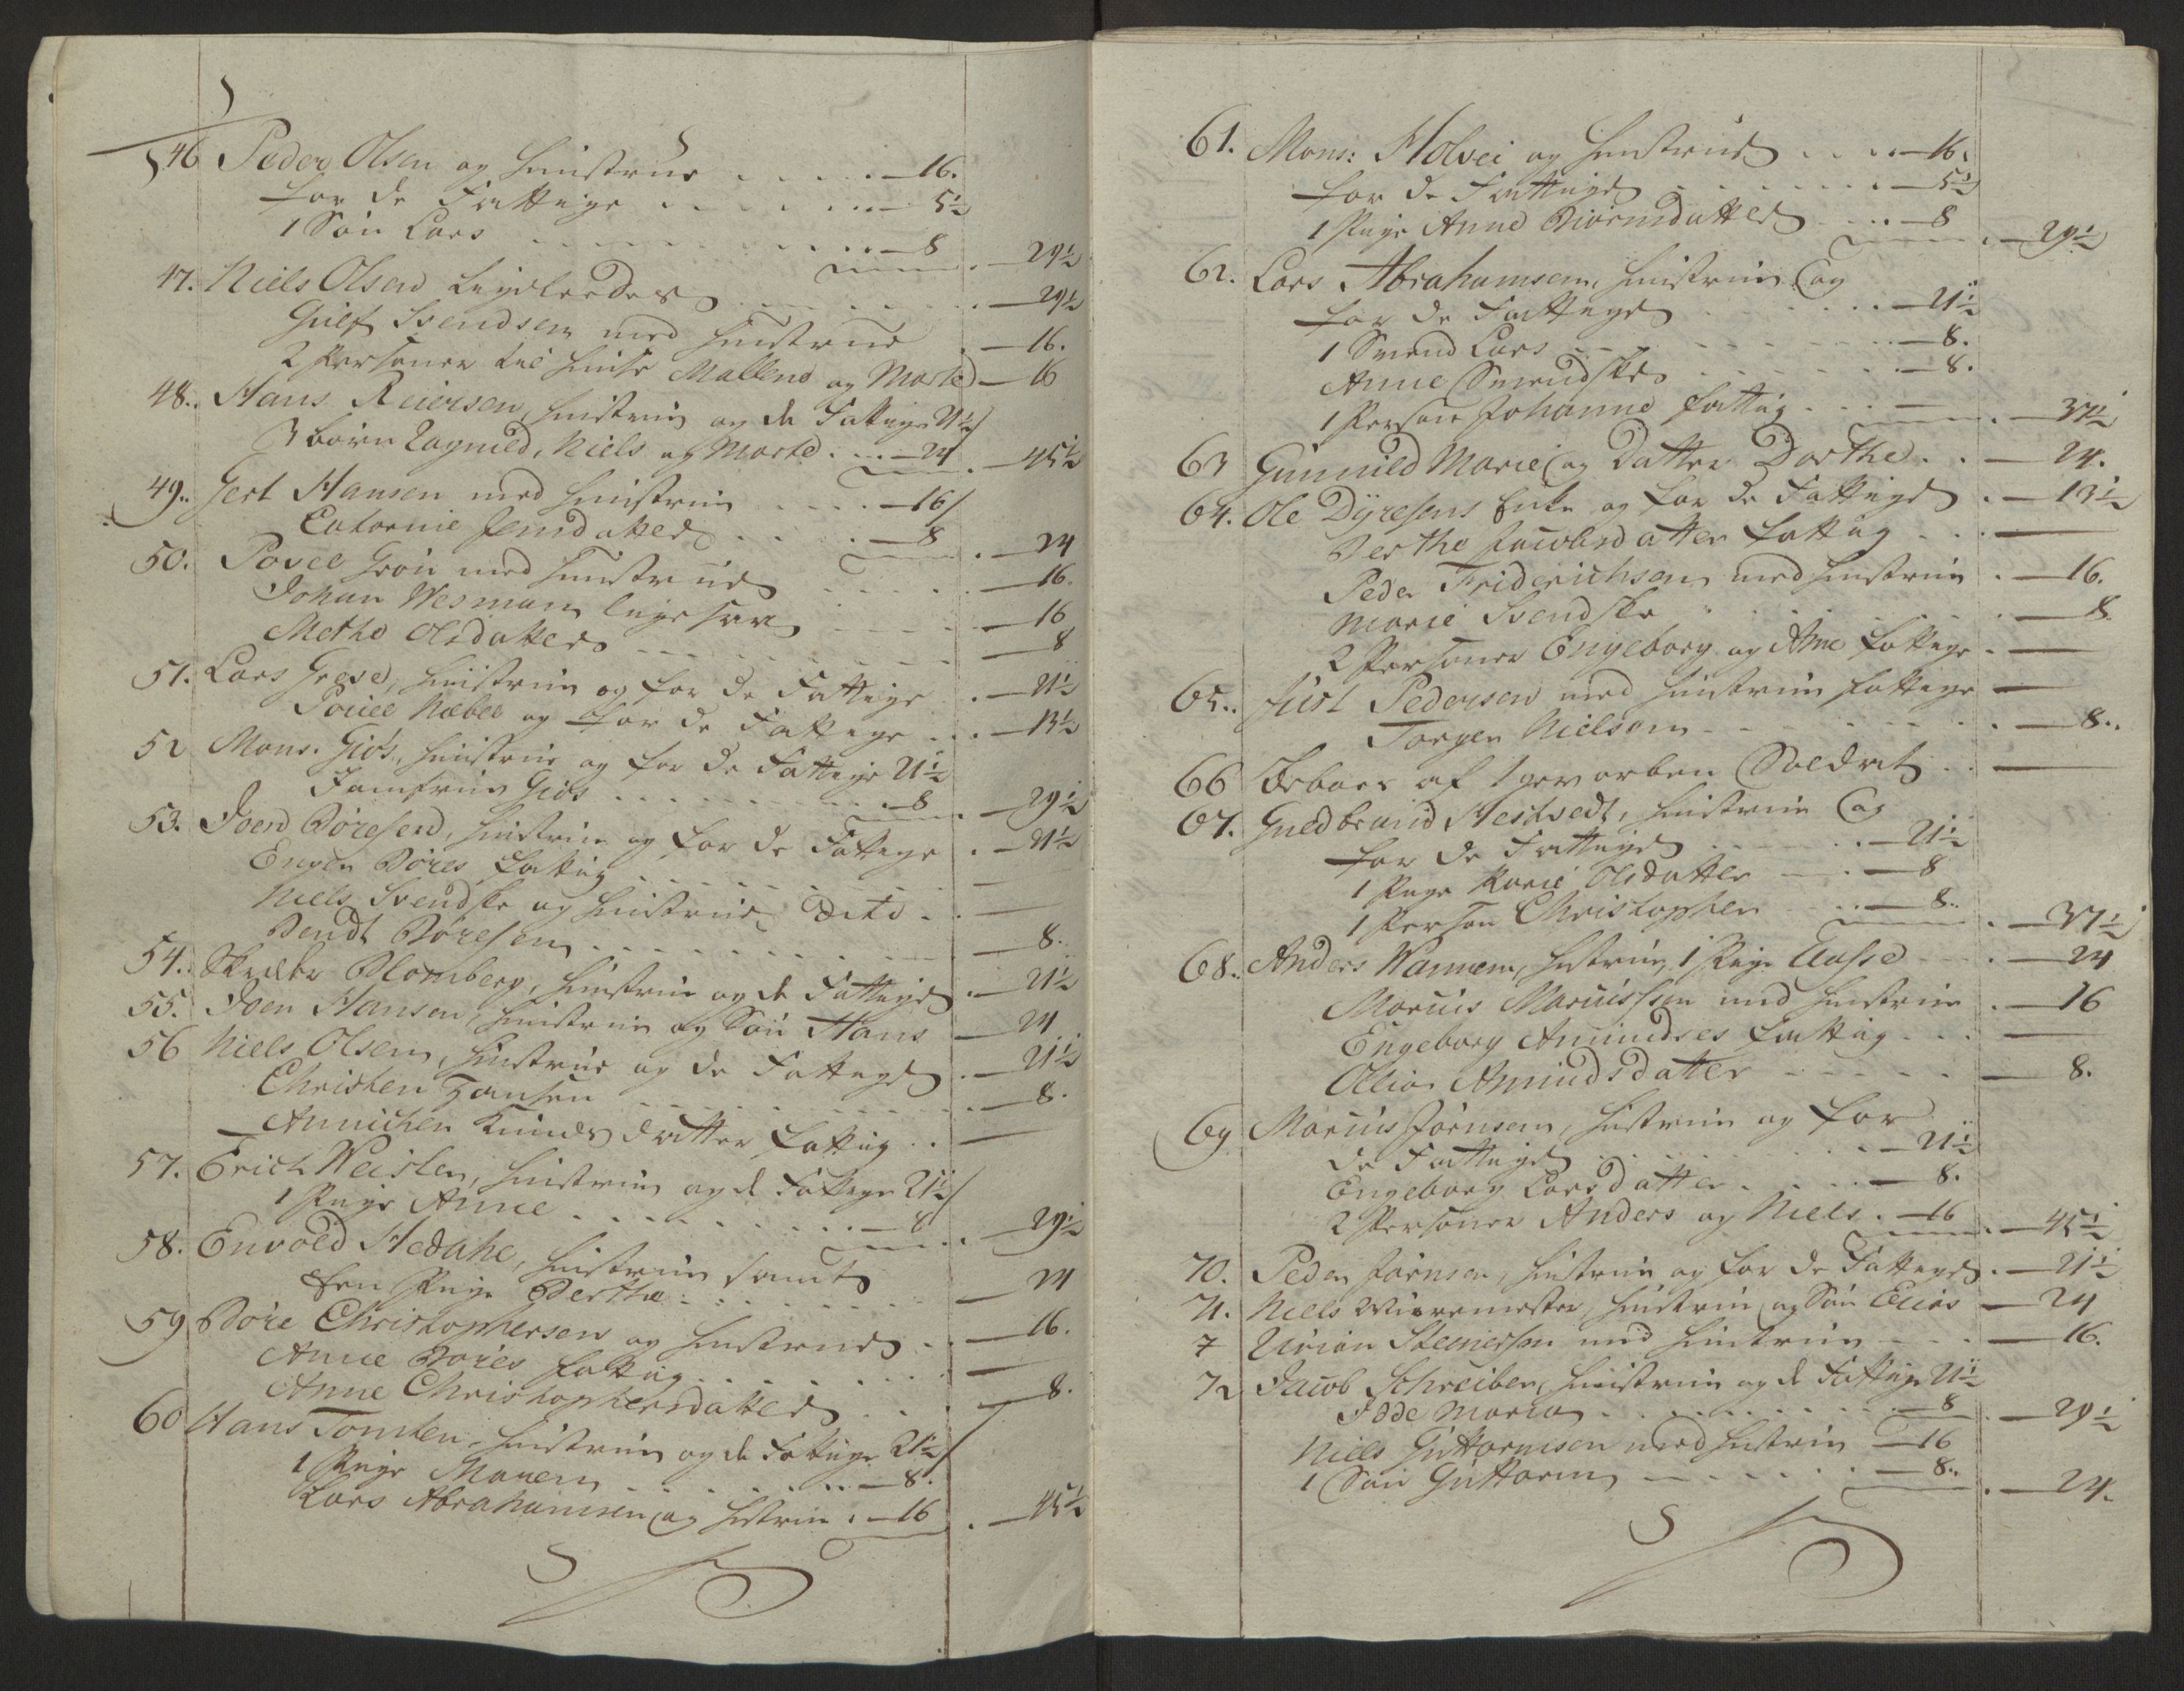 46 Peder Olsen og Hustrue . . . . — 16.
for de Fattige . . . . — 5½
1 Søn Lars . . . . — 8 . — 29½
47. Niels Olsen Ligeleedes . . . — 29½
Gulf Svendsen med Hustrue . — 16.
2 Personer til Huuse Mallene og Marte — 16
48. Hans Reiersen, Hustrue og de Fattige 21½
3 børn Ragnild, Niels og Marte . . — 24 . — 45½
49. Gert Hansen med Hustrue . . . — 16
Catarine Jensdatter . . — 8 . — 24
50. Povel Grøn med Hustrue . . . — 16.
Johan Wesman lige saa — 16
Methe Olsdatter — 8
51. Lars Grese, Hustrue og for de Fattige . — 21½
Povel Næbel og for de Fattige . . — 13½
52 Mons. Giøs, Hustrue og for de Fattige 21½
Jomfrue Giøs . . . . — 8 . — 29½
53. Joen Børesen, Hustrue og for de Fattige . — 21½
Engen Børes fattig . . . —
Niels Svendske og Hustrue Dito . . —
Bendt Børesen . . . . — 8.
54. Skredder Blomberg, Hustrue og de Fattige . — 21½
55. Joen Hansen, Hustrue og Søn Hans — 24.
56 Niels Olsen, Hustrue og de Fattige . — 21½
Christen Hansen . . . — 8.
Annichen Knudsdatter fattig . . —
57. Erich Weisten, Hustrue og de Fattige 21½
1 Pige Anne . . . . — 8 . — 29½
58. Envold Hedahe, Hustrue samt
Een Pige Berthe . . . — 24
59 Børe Christophersen og Hustrue . . — 16.
Anne Børes fattig . . . . —
Anne Christophersdatter . . . — 8.
60 Hans Tomten, Hustrue og de Fattige 21½
1 Pige Maren . . . . — 8.
Lars Abrahamsen og Hustrue . — 16 . — 45½
61. Mons: Holvei og Hustrue . . . — 16.
for de Fattige . . . . — 5½
1 Pige Anne Biørnsdatter . . — 8 . — 29½
62. Lars Abrahamsen, Hustrue og
for de Fattige . . . — 21½
1 Svend Lars . . . — 8.
Anne Svendske . . . — 8.
1 Person Johanne fattig . . — . — 37½
63 Gunnild Marie og Datter Dorthe . . — 24.
64. Ole Dyresens Enke og for de Fattige . — 13½
Berthe Jacobsdatter fattig . . —
Peder Friderichsen med Hustrue . — 16.
Marie Svendske . . . — 8.
2 Personer Engeborg og Ane fattige . —
65. Just Pedersen med Hustrue fattige —
Torger Nielsen — 8.
66 Beboes af 1 gevorben Soldat . . —
67. Guldbrand Hestvedt, Hustrue og
for de Fattige . . — 21½
1 Pige Karie Olsdatter — . — 8
1 Person Christopher . . — 8. . — 37½
68. Anders Wannem, Hustrue, 1 Pige Aasse — 24
Marius Mariussen med Hustrue . — 16
Engeborg Amundses fattig . . . —
Ollia Amundsdatter . . . — 8.
69 Marius Jørnsen, Hustrue og for
de Fattige . . . . — 21½
Engeborg Larsdatter . . . — 8.
2 Personer Anders og Niels . — 16 . — 45½
70. Peder Jørnsen, Hustrue og for de Fattige . — 21½
71. Niels Miuremester, Hustrue og Søn Elias — 24
7 Urian Steenersen med Hustrue . . — 16.
72 Jacob Schreiber, Hustrue og de Fattige 21½
Idde Maria . . . . — 8 . — 29½
Niels Guttormsen med Hustrue — 16
1 Søn Guttorm — — — 8. . — 24.